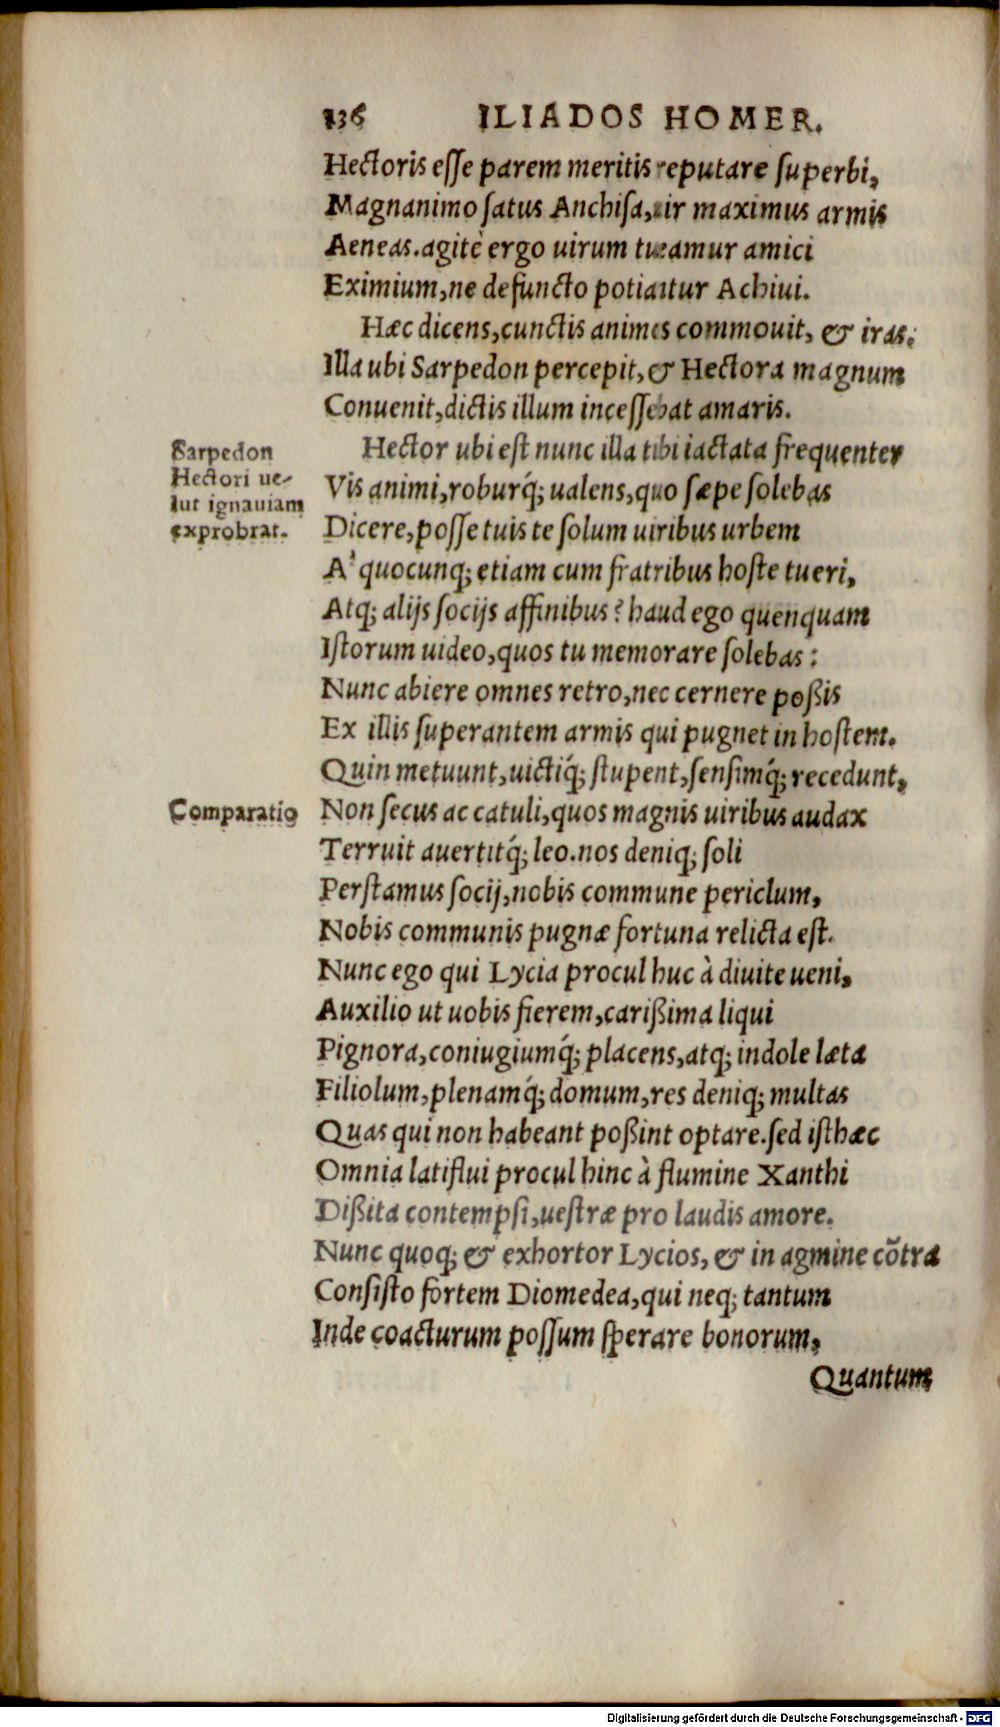 136 ILIADOS HOMER.
Hectoris esse parem meritis reputare superbi,
Magnanimo satus Anchisa, uir maximus armis
Aeneas. agitè ergo uirum tueamur amici
Eximium, ne defuncto potiantur Achiui.
Hæc dicens, cunctis animos commouit, & iras:
Illa ubi Sarpedon percepit, & Hectora magnum
Conuenit, dictis illum incessebat amaris.
Hector ubi est nunc illa tibi iactata frequenter
Sarpedon
Hectori ue-
lut ignauiam
exprobrat.
Vis animi, roburq́; ualens, quo sæpe solebas
Dicere, posse tuis te solum uiribus urbem
A' quocunq; etiam cum fratribus hoste tueri,
Atq; alijs socijs affinibus? haud ego quenquam
Istorum uideo, quos tu memorare solebas:
Nunc abiere omnes retro, nec cernere poßis
Ex illis superantem armis qui pugnet in hostem.
Quin metuunt, uictiq́; stupent, sensimq́; recedunt,
Comparatio
Non secus ac catuli, quos magnis uiribus audax
Terruit auertitq́; leo. nos deniq; soli
Perstamus socij, nobis commune periclum,
Nobis communis pugnæ fortuna relicta est.
Nunc ego qui Lycia procul huc à diuite ueni,
Auxilio ut uobis fierem, carißima liqui
Pignora, coniugiumq́; placens, atq; indole læta
Filiolum, plenamq́; domum, res deniq; multas
Quas qui non habeant poßint optare. sed isthæc
Omnia latiflui procul hinc à flumine Xanthi
Dißita contempsi, uestræ pro laudis amore.
Nunc quoq; & exhortor Lycios, & in agmine cõtra
Consisto fortem Diomedea, qui neq; tantum
Inde coacturum possum sperare bonorum,
Quantum
Digitalisierung gefördert durch die Deutsche Forschungsgemeinschaft - DFG